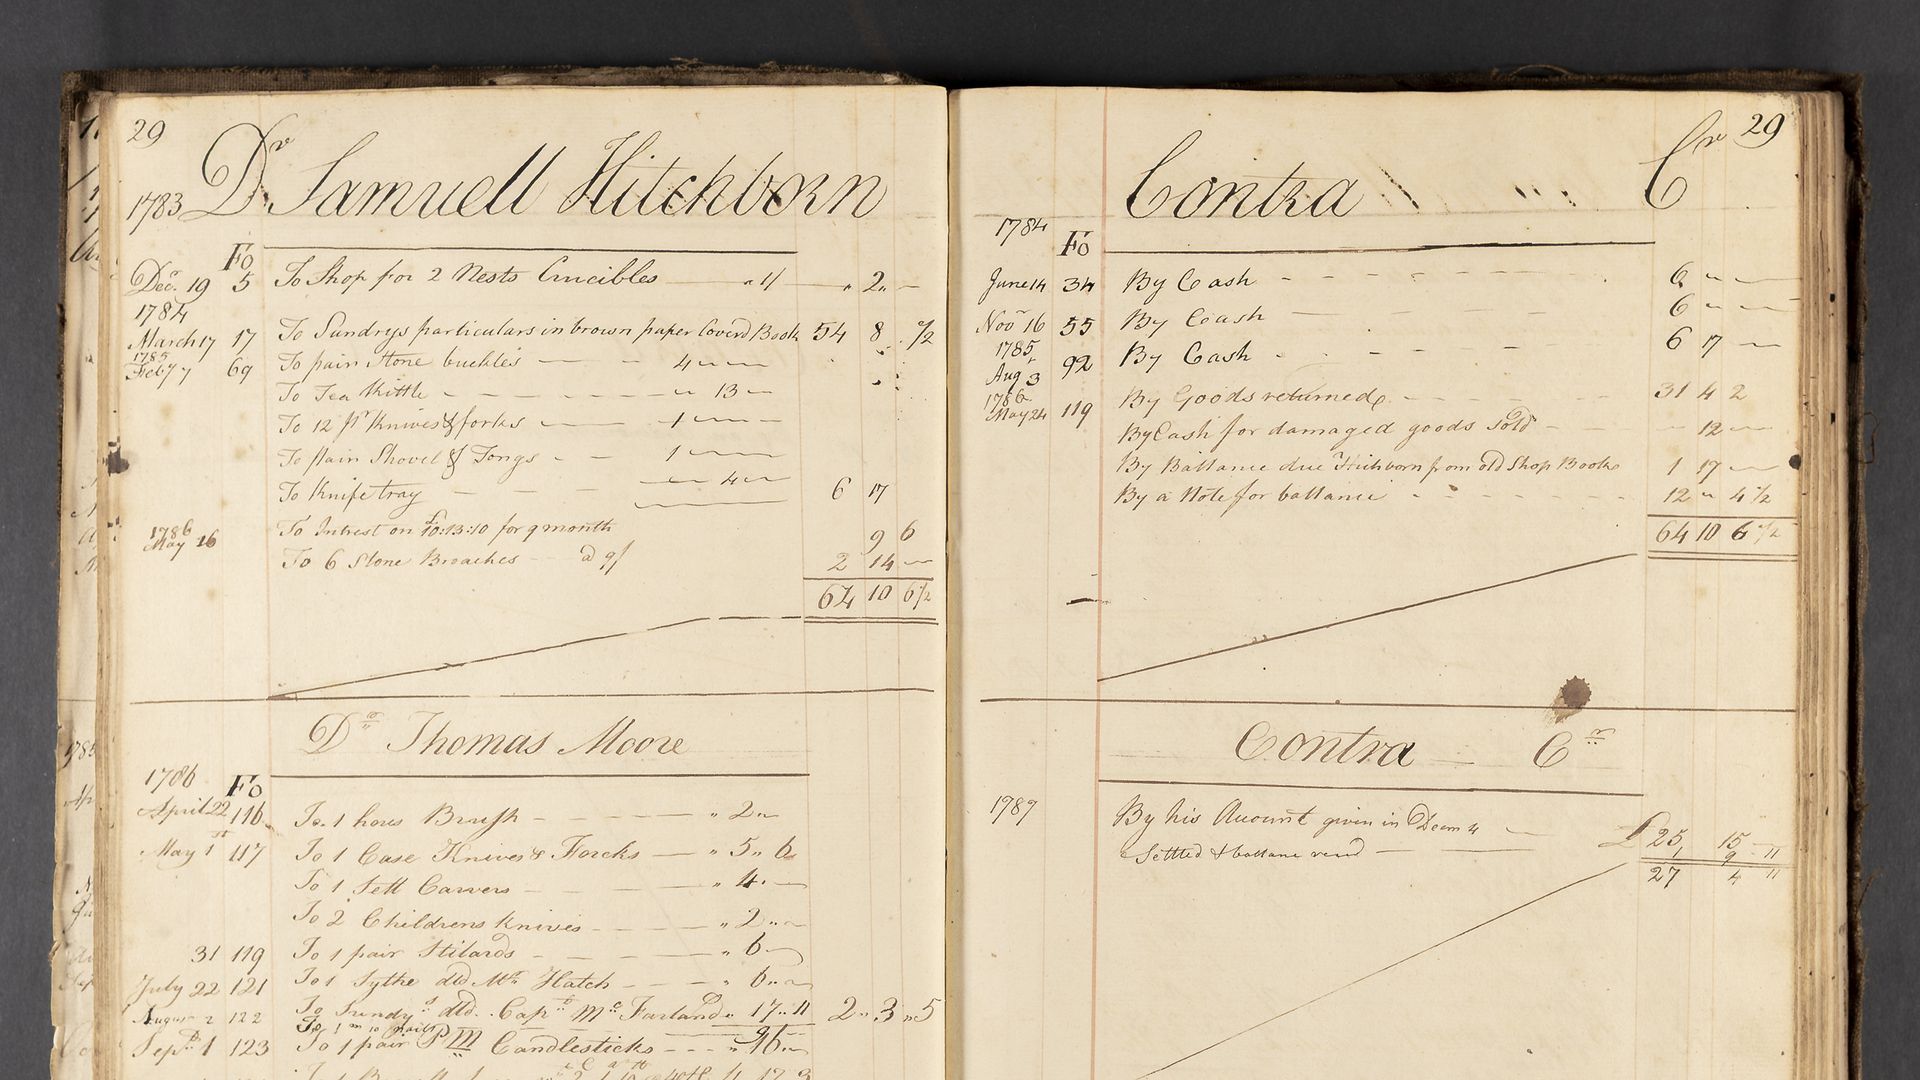 29
Dr Samuell Hitchborn
1783
Fo
Dec. 19 5 To Shop for 2 Nests Crucibles " 1/ " 2 " -
1784
March 17 17 To Sundrys particulars in brown paper Coverd Book 54 8 . 1/2
1785
Feby 7 69 To pair Stone buckles 4 " "
To Tea Kittle " 13 "
To 12 pr Knives & forks 1 " "
To pair Shovel & Tongs 1 " "
To Knife tray " 4 " 6 17
1786
May 16 To Intrest on £10:13:10 for 9 month 9 6
To 6 Stone Broaches @ 9/ 2 14 "
64 10 6 1/2
Dr Thomas Moore
1786
Fo
April 22 116 To 1 hors Brush " 2 "
May 1st 117 To 1 Case Knives & Forcks " 5 " 6
To 1 Sett Carvers " 4 "
To 2 Childrens Knives " 2 "
31 119 To 1 pair Stilards " 6
July 22 121 To 1 Sythe dld Mr Hatch " 6 "
August 2 122 To Sundys dld. Capt Mc Farland " 17 " 11 2 " 3 " 5
To 1 m 10 nails
Sepr 1 123 To 1 pair P M Candlesticks " 16 "
Contra Cr
29
1784
Fo
June 14 34 By Cash 6 " "
Nov 16 55 By Cash 6 " "
1785
Aug 3 92 By Cash 6 17 "
1786
May 24 119 By Goods returned 31 4 2
By Cash for damaged goods Sold 12 "
By Ballance due Hichborn from old Shop Book 1 17 "
By a Note for ballance 12 " 4 1/2
64 10 6 1/2
Contra Cr
1787
By his Acount given in Decem 4 £25 15 11
Settled & ballane recd 1 9
27 4 11